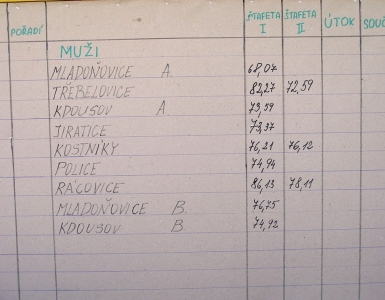 POŘADÍ ŠTAFETA I ŠTAFETA II ÚTOK SOUČ
MUŽI
MLADOŇOVICE A. 68,07
TŘEBELOVICE 82,27 72,59
KDOUSOV A 73,59
JIRATICE 73,37
KOSTNÍKY 76,21 76,12
POLICE 74,94
RÁCOVICE 86,13 78,11
MLADOŇOVICE B. 76,75
KDOUSOV B. 74,92